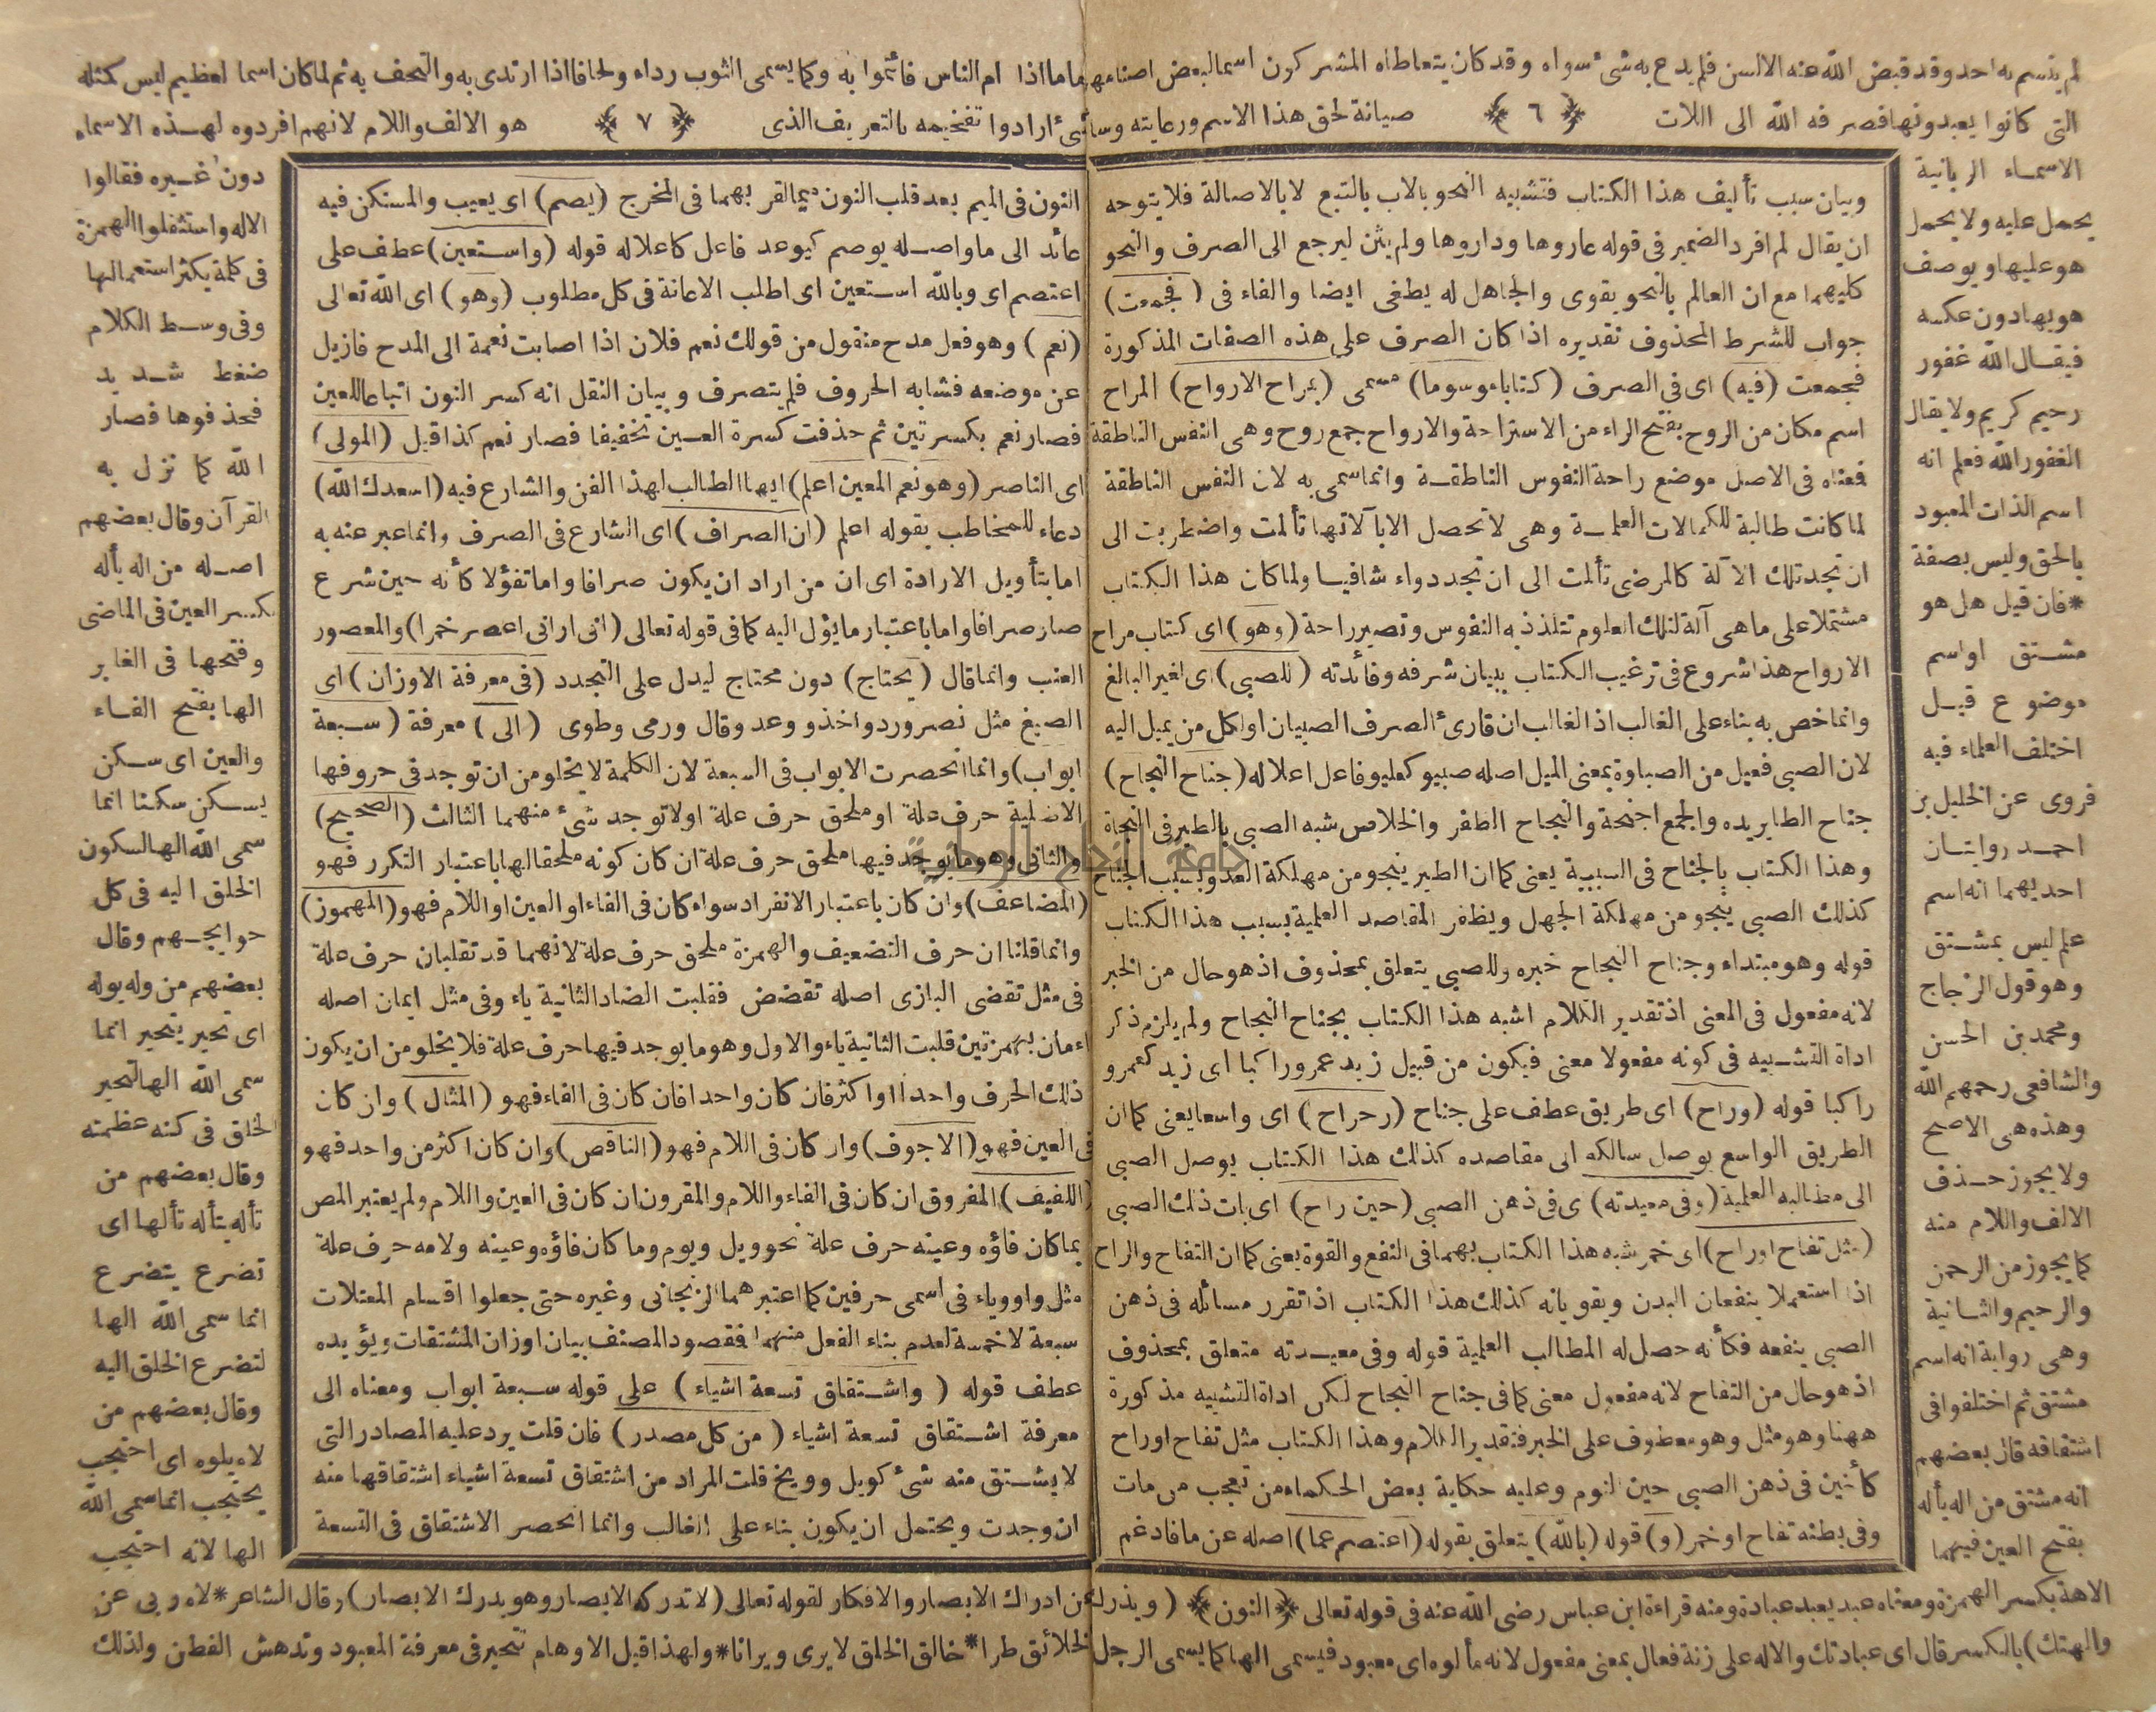 لم يتسم به احد وقد قبض الله عنه الالسن فلم يدع به شئ سواه وقد كان يتعاطاه المشركون اسما لبعض اصنامهم
التى كانوا يعبدونها فصرفه الله الى اللات ﴿ ٦ ﴾ صيانة لحق هذا الاسم ورعايته
الاسماء الربانية
يحمل عليه ولا يحمل
هو عليها ويوصف
هو بها دون عكسه
فيقال الله غفور
رحيم كريم ولا يقال
الغفور الله فعلم انه
اسم الذات المعبود
بالحق وليس بصفة
*فان قيل هل هو
مشتق او اسم
موضوع قيل
اختلف العلماء فيه
فروى عن الخليل بن
احمد روايتان
احديهما انه اسم
علم ليس بمشتق
وهو قول الزجاج
ومحمد بن الحسن
والشافعى رحمهم الله
وهذه هى الاصح
ولا يجوز حذف
الالف واللام منه
كما يجوز من الرحمن
والرحيم والثانية
وهى رواية انه اسم
مشتق ثم اختلفوا فى
اشتقاقه قال بعضهم
انه مشتق من اله يأله
بفتح العين فيهما
وبيان سبب تأليف هذا الكتاب فتشبيه النحو بالاب بالتبع لا بالاصالة فلا يتوجه
ان يقال لم افرد الضمير فى قوله عاروها وداروها ولم يثن ليرجع الى الصرف والنحو
كليهما مع ان العالم بالنحو يقوى والجاهل له يطغى ايضا والفاء فى (فجمعت)
جواب للشرط المحذوف تقديره اذا كان الصرف على هذه الصفات المذكورة
فجمعت (فيه) اى فى الصرف (كتابا موسوما) مسمى (بمراح الارواح) المراح
اسم مكان من الروح بفتح الراء من الاستراحة والارواح جمع روح وهى النفس الناطقة
فمعناه فى الاصل موضع راحة النفوس الناطقة وانما سمى به لان النفس الناطقة
لما كانت طالبة للكمالات العلمية وهى لا تحصل الا بآلاتها تألمت واضطربت الى
ان تجد تلك الآلة كالمرضى تألمت الى ان تجد دواء شافيا ولما كان هذا الكتاب
مشتملا على ما هى آلة لتلك العلوم تتلذذ به النفوس وتصير راحة (وهو) اى كتاب مراح
الارواح هذا شروع فى ترغيب الكتاب ببيان شرفه وفائدته (للصبى) اى لغير البالغ
وانما خص به بناء على الغالب اذ الغالب ان قارئ الصرف الصبيان او لكل من يميل اليه
لان الصبى فعيل من الصباوة بمعنى الميل اصله صبيو كعليو فاعل اعلاله (جناح النجاح)
جناح الطاير يده والجمع اجنحة والنجاح الظفر والخلاص شبه الصبى بالطير فى النجاة
وهذا الكتاب بالجناح فى السببية يعنى كما ان الطير ينجو من مهلكة العدو بسبب الجناح
كذلك الصبى ينجو من مهلكة الجهل ويظفر المقاصد العلمية بسبب هذا الكتاب
قوله وهو مبتداء وجناح النجاح خبره وللصبى يتعلق بمحذوف اذ هو حال من الخبر
لانه مفعول فى المعنى اذ تقدير الكلام اشبه هذا الكتاب بجناح النجاح ولم يلزم ذكر
اداة التشبيه فى كونه مفعولا معنى فيكون من قبيل زيد عمرو راكبا اى زيد كعمرو
راكبا قوله (وراح) اى طريق عطف على جناح (رحراح) اى واسعا يعنى كما ان
الطريق الواسع يوصل سالكه الى مقاصده كذلك هذا الكتاب يوصل الصبى
الى مطالبه العلمية (وفى معيدته) اى فى ذهن الصبى (حين راح) اى بات ذلك الصبى
(مثل تفاح او راح) اى خمر شبه هذا الكتاب بهما فى النفع والقوة يعنى كما ان التفاح والراح
اذا استعملا ينفعان البدن ويقويانه كذلك هذا الكتاب اذا تقرر مسائله فى ذهن
الصبى ينفعه فكأنه حصل له المطالب العلمية قوله وفى معيدته متعلق بمحذوف
اذ هو حال من التفاح لانه مفعول معنى كما فى جناح النجاح لكن اداة التشبيه مذكورة
ههنا وهو مثل وهو معطوف على الخبر فتقدير الكلام وهذا الكتاب مثل تفاح او راح
كأنين فى ذهن الصبى حين النوم وعليه حكاية بعض الحكماء من تعجب من مات
وفى بطنه تفاح او خمر (و) قوله (بالله) يتعلق بقوله (اعتصم عما) اصله عن ما فادغم
الاهة بكسر الهمزة ومعناه عبد يعبد عبادة ومنه قراءة ابن عباس رضى الله عنه فى قوله تعالى ﴿ النون ﴾ (ويذرك
والهتك) بالكسر قال اى عبادتك والاله على زنة فعال بمعنى مفعول لانه مألوه اى معبود فيسمى الها كما يسمى الرجل
اماما اذا ام الناس فائتموا به وكما يسمى الثوب رداء ولحافا اذا ارتدى به والتحف به ثم لما كان اسما لعظيم ليس كمثله
شئ ارادوا تفخيمه بالتعريف الذى ﴿ ٧ ﴾ هو الالف واللام لانهم افردوه لهذه الاسماء
دون غيره فقالوا
الاله واستثقلوا الهمزة
فى كلمة يكثر استعمالها
وفى وسط الكلام
ضغط شديد
فحذفوها فصار
الله كما نزل به
القرآن وقال بعضهم
اصله من اله يأله
بكسر العين فى الماضى
وفتحها فى الغابر
الها بفتح الفاء
والعين اى سكن
يسكن سكنا انما
سمى الله الها لسكون
الخلق اليه فى كل
حوايجهم وقال
بعضهم من وله يوله
اى تحير يتحير انما
سمى الله الها لتحير
الخلق فى كنه عظمته
وقال بعضهم من
تأله يتأله تألها اى
تضرع يتضرع
انما سمى الله الها
لتضرع الخلق اليه
وقال بعضهم من
لاه يلوه اى احتجب
يحتجب انما سمى الله
الها لانه احتجب
النون فى الميم بعد قلب النون ميما لقربهما فى المخرج (يصم) اى يعيب والمستكن فيه
عائد الى ما واصله يوصم كيوعد فاعل كاعلاله قوله (واستعين) عطف على
اعتصم اى وبالله استعين اى اطلب الاعانة فى كل مطلوب (وهو) اى الله تعالى
(نعم) وهو فعل مدح منقول من قولك نعم فلان اذا اصابت نعمة الى المدح فازيل
عن موضعه فشابه الحروف فلم يتصرف وبيان النقل انه كسر النون اتباعا للعين
فصار نعم بكسرتين ثم حذفت كسرة العين تخفيفا فصار نعم كذا قيل (المولى)
اى الناصر (وهو نعم المعين اعلم) ايها الطالب لهذا الفن والشارع فيه (اسعدك الله)
دعاء للمخاطب بقوله اعلم (ان الصراف) اى الشارع فى الصرف وانما عبر عنه به
اما بتأويل الارادة اى ان من اراد ان يكون صرافا واما تفؤلا كأنه حين شرع
صار صرافا واما باعتبار ما يؤل اليه كما فى قوله تعالى (انى ارانى اعصر خمرا) والمعصور
العنب وانما قال (يحتاج) دون محتاج ليدل على التجدد (فى معرفة الاوزان) اى
الصيغ مثل نصر ورد واخذ ووعد وقال ورمى وطوى (الى) معرفة (سبعة
ابواب) وانما انحصرت الابواب فى السبعة لان الكلمة لا يخلو من ان توجد فى حروفها
الاصلية حرف علة او ملحق حرف علة اولا توجد شئ منهما الثالث (الصحيح)
والثانى وهو ما يوجد فيها ملحق حرف علة ان كان كونه ملحقا لها باعتبار التكرر فهو
(المضاعف) وان كان باعتبار الانفراد سواء كان فى الفاء او العين او اللام فهو (المهموز)
وانما قلنا ان حرف التضعيف والهمزة ملحق حرف علة لانهما قد تقلبان حرف علة
فى مثل تقضى البازى اصله تقضض فقلبت الضاد الثانية ياء وفى مثل ايمان اصله
اءمان بهمزتين قلبت الثانية ياء والاول وهو ما يوجد فيها حرف علة فلا يخلو من ان يكون
ذلك الحرف واحدا او اكثر فان كان واحدا فان كان فى الفاء فهو (المثال) وان كان
فى العين فهو (الاجوف) وان كان فى اللام فهو (الناقص) وان كان اكثر من واحد فهو
(اللفيف) المفروق ان كان فى الفاء واللام والمقرون ان كان فى العين واللام ولم يعتبر المص
بما كان فاؤه وعينه حرف علة نحو ويل ويوم وما كان فاؤه وعينه ولامه حرف علة
مثل واو وياء فى اسمى حرفين كما اعتبرهما الزنجانى وغيره حتى جعلوا اقسام المعتلات
سبعة لا خمسة لعدم بناء الفعل منهما فمقصود المصنف بيان اوزان المشتقات ويؤيده
عطف قوله (واشتقاق تسعة اشياء) على قوله سبعة ابواب ومعناه الى
معرفة اشتقاق تسعة اشياء (من كل مصدر) فان قلت يرد عليه المصادر التى
لا يشتق منه شئ كويل وويخ قلت المراد من اشتقاق تسعة اشياء اشتقاقها منه
ان وجدت ويحتمل ان يكون بناء على الغالب وانما انحصر الاشتقاق فى التسعة
عن ادراك الابصار والافكار لقوله تعالى (لا تدركه الابصار وهو يدرك الابصار) وقال الشاعر *لاه ربى عن
الخلائق طرا * خالق الخلق لا يرى ويرانا* ولهذا قيل الاوهام تتحير فى معرفة المعبود وتدهش الفطن ولذلك
جامعة النجاح الوطنية